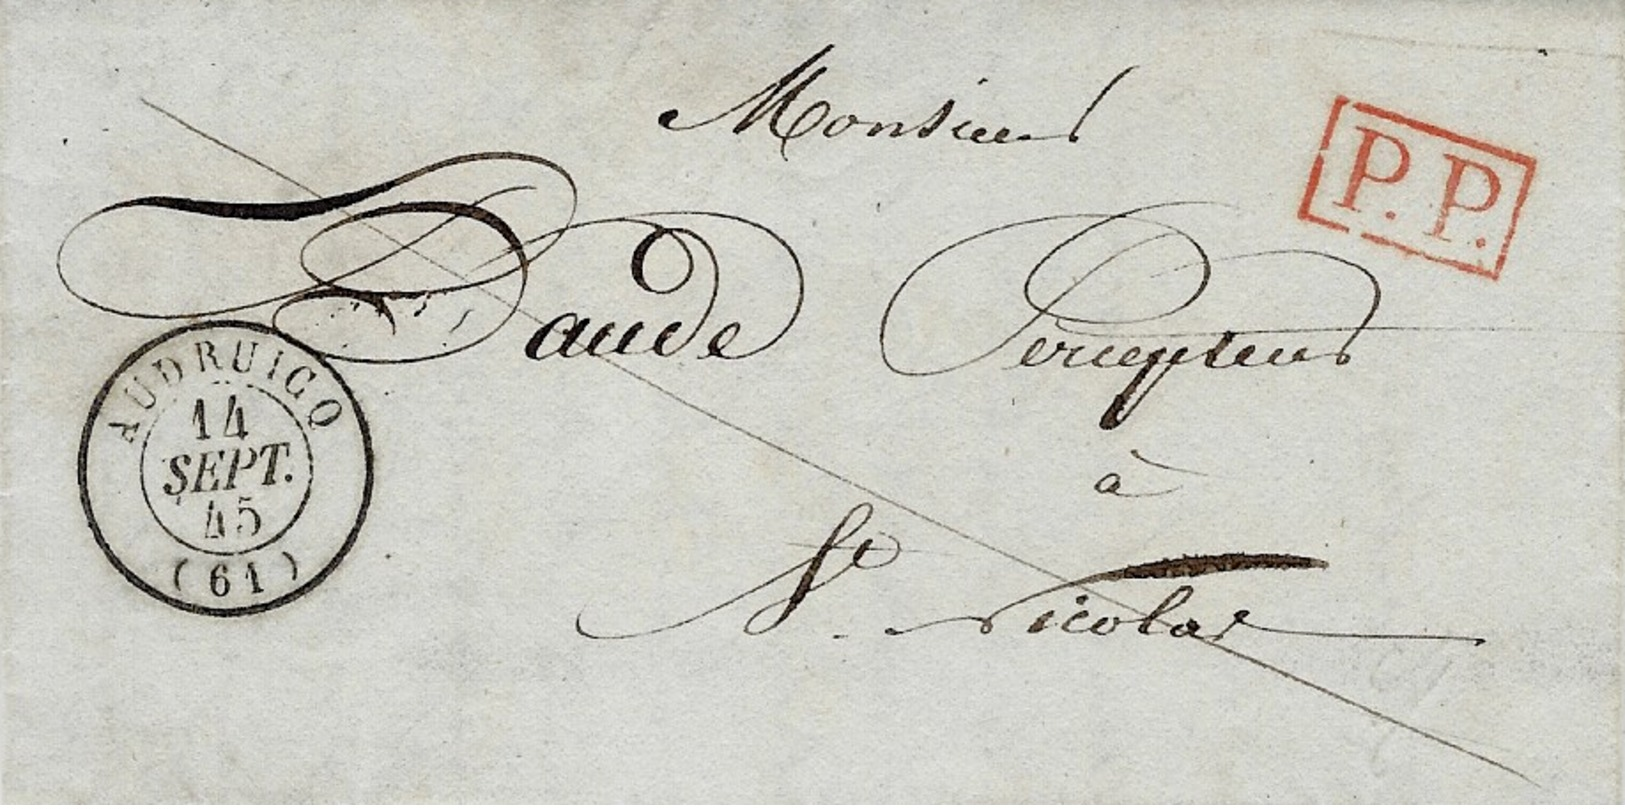 Monsieur
P.P.
Daude Percepteur
à
St. Nicolas
AUDRUICQ
14
SEPT.
45
(61)